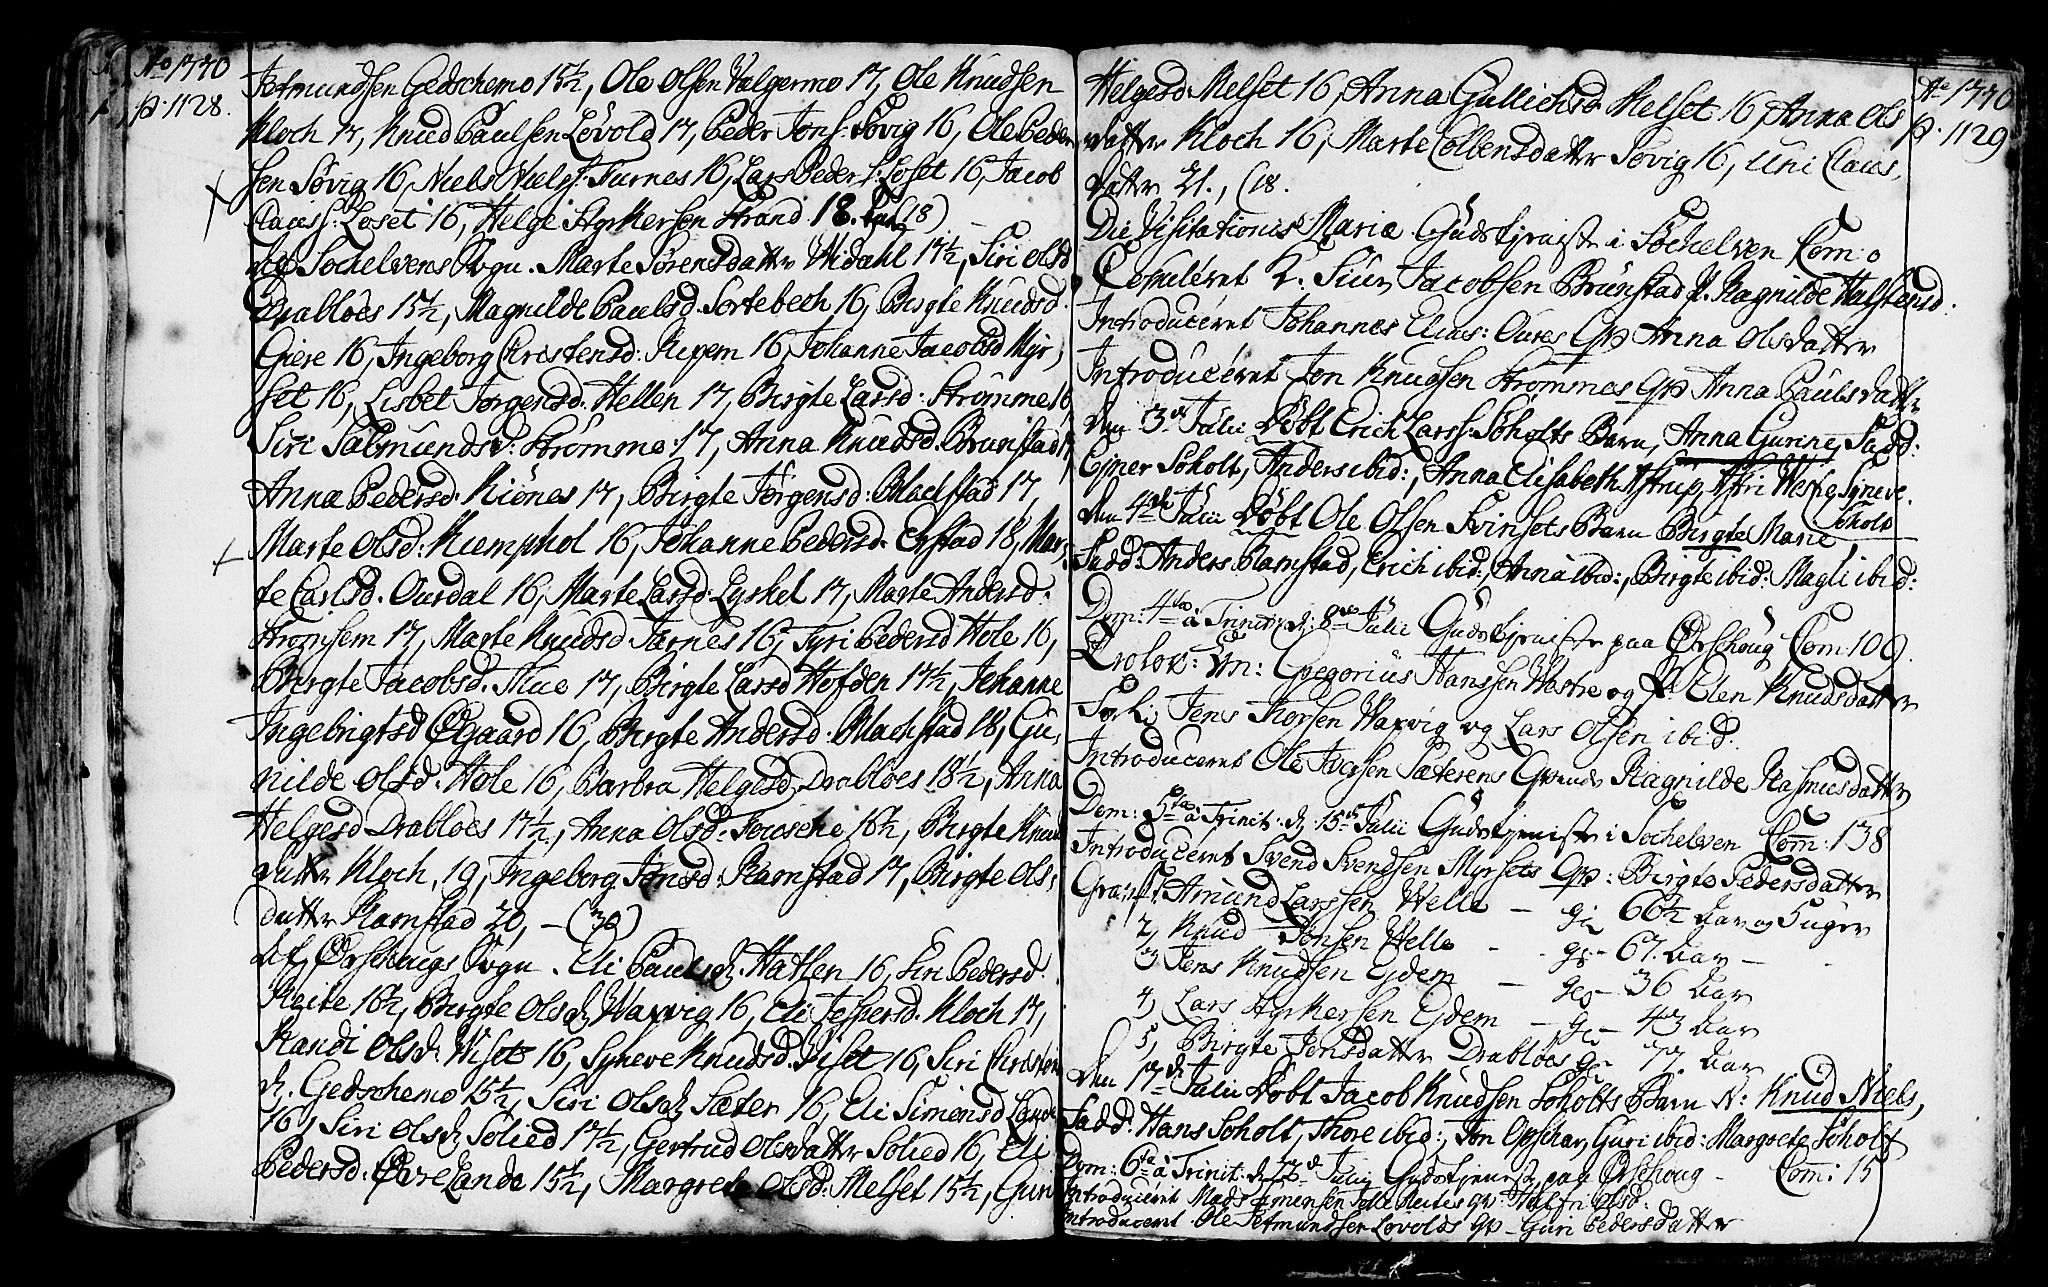 Ao 1770
p. 1128.
Jetmundsen Gedschemo 15½, Ole Olsen Valgermo 17, Ole Knudsen
Kloch 17, Knud Paulsen Løvold 17, Peder Jons: Søvig 16, Ole Peder
sen Søvig 16, Niels Niels: Furnes 16, Lars Peders: Løset 16, Jacob
Clauss: Løset 16, Helge Strand 18. (18)
Af Søchelvens Sogn. Marte Sørensdatter Widahl 17½, Siri Olsd
Drabløes 15½, Magnilde Paulsd. Sortebech 16, Birgte Knudsd.
Giere 16, Ingeborg Christensd: Repem 16, Johanne Jacobsd Myr,
set 16, Lisbet Jørgensd. Hellen 17, Birgte Larsd: Strømme 16
Siri Salmundsd: Strømme 17, Anna Knudsd. Brunstad 17,
Anna Pedersd. Kiønes 17, Birgte Jørgensd: Blachstad 17,
Marte Olsd: Kumphol 16, Johanne Pedersd. Erstad 18, Mar,
te Carlsd. Ousdal 16, Marte Larsd: Lyshol 17, Marte Andersd.
Strømsem 17, Marte Knudsd Tarnes 16, Gyri Pedersd Hole 16,
Birgte Jacobsd. Mue 17, Birgte Larsd Hofden 17½, Johanne
Ingebrigtsd Ødgaard 16, Birgte Andersd. Blachstad 18, Gu,
nilde Olsd. Hole 16, Barbra Helgesd. Drabløes 18½, Anna
Helgesd Drabløes 17½, Anna Olsd. Fousche 16½, Birgte Knuds
datter Kloch, 19, Ingeborg Jonsd: Ramstad 17, Birgte Ols,
datter Ramstad 20, — (30)
Af Ørschougs Sogn. Eli Paulsd. Hatlen 16, Siri Pedersd.
Reite 16½, Birgte Olsd. Warvig 16, Eli Jespersd. Kloch 17,
Randi Olsd: Viset 16, Syneve Knudsd. Viset 16, Siri Christen
d. Gedschemo 15½, Siri Olsd. Sæter 16, Eli Simensd Lande
16, Siri Olsd. Solied 17½, Gertrud Olsdatter Solied 16, Eli
Pedersd: Øvre Lande 15½, Margrete Olsd: Melset 15½, Guri
Ao 1770
p. 1129
Helgesd Melset 16, Anna Gullichsd Melset 16, Anna Ols
datter Kloch 16, Marte Colbensdatter Søvig 16, Uni Claus,
datter 21., (18.
Die Visitationis Mariæ Gudstjeniste i Søchelven Com: 0
Copuleret K. Siur Jacobsen Brunstad P. Ragnilde Halstensd.
Introduceret Johannes Elias: Oures Qv Anna Olsdatter
Introduceret Jon Knudsen Strømmes Qv Anna Paulsdatter
Den 3de Julii Døbt Erich Larss: Søholts Barn, Anna Gurine, Fadd:
Ejner Søholt, Anders ibid:, Anna Elisabeth Astrup, Astri Westre, Syneve.
Søholt
Den 4de Julii Døbt Ole Olsen Svinsets Barn Birgte Marie,
Fadd: Anders Ramstad, Erich ibid:, Anna ibid:, Birgte ibid: Magli ibid:
Dom: 4ta à Trinit. d. 8de Julii Gudstjeniste paa Ørschoug Com: 109.
Trolov: Em: Gregorius Hanssen Westre og P. Elen Knudsdatter
Forl: Jens Thorsen Warvig og Lars Olsen ibid.
Introduceret Ole Iversen Sætrens Qvinde Ragnilde Rasmusdatter
Dom: 5ta à Trinit: d. 15de Julii Gudstjeniste i Søchelven Com: 138
Introduceret Svend Svendsen Myrsets Qv: Birgte Pedersdatter
Gra: 1, Amund Larssen Welle — gl 66½ Aar og 5 uger
2, Knud Jonsen Welle - gl - 67. Aar —
3 Jens Knudsen Ejdem - gl - 36 Aar
4, Lars Ejdem - gl - 43 Aar
5, Birgte Jonsdatter Drabløes gl 77. Aar
Den 17de Julii Døbt Jacob Knudsen Søholts Barn N: Knud Niels,
Fadd: Hans Søholt, Thore ibid:, Jon Opshav, Guri ibid: Margrete Søholt
Dom: 6ta à Trinit: d. 22de Julii Gudstjenist paa Ørschoug - Com: 15
Introduceret Mads Reites Qv: Olsd:
Introduceret Ole Jetmundsen Løvolds Qv - Guri Pedersdatter